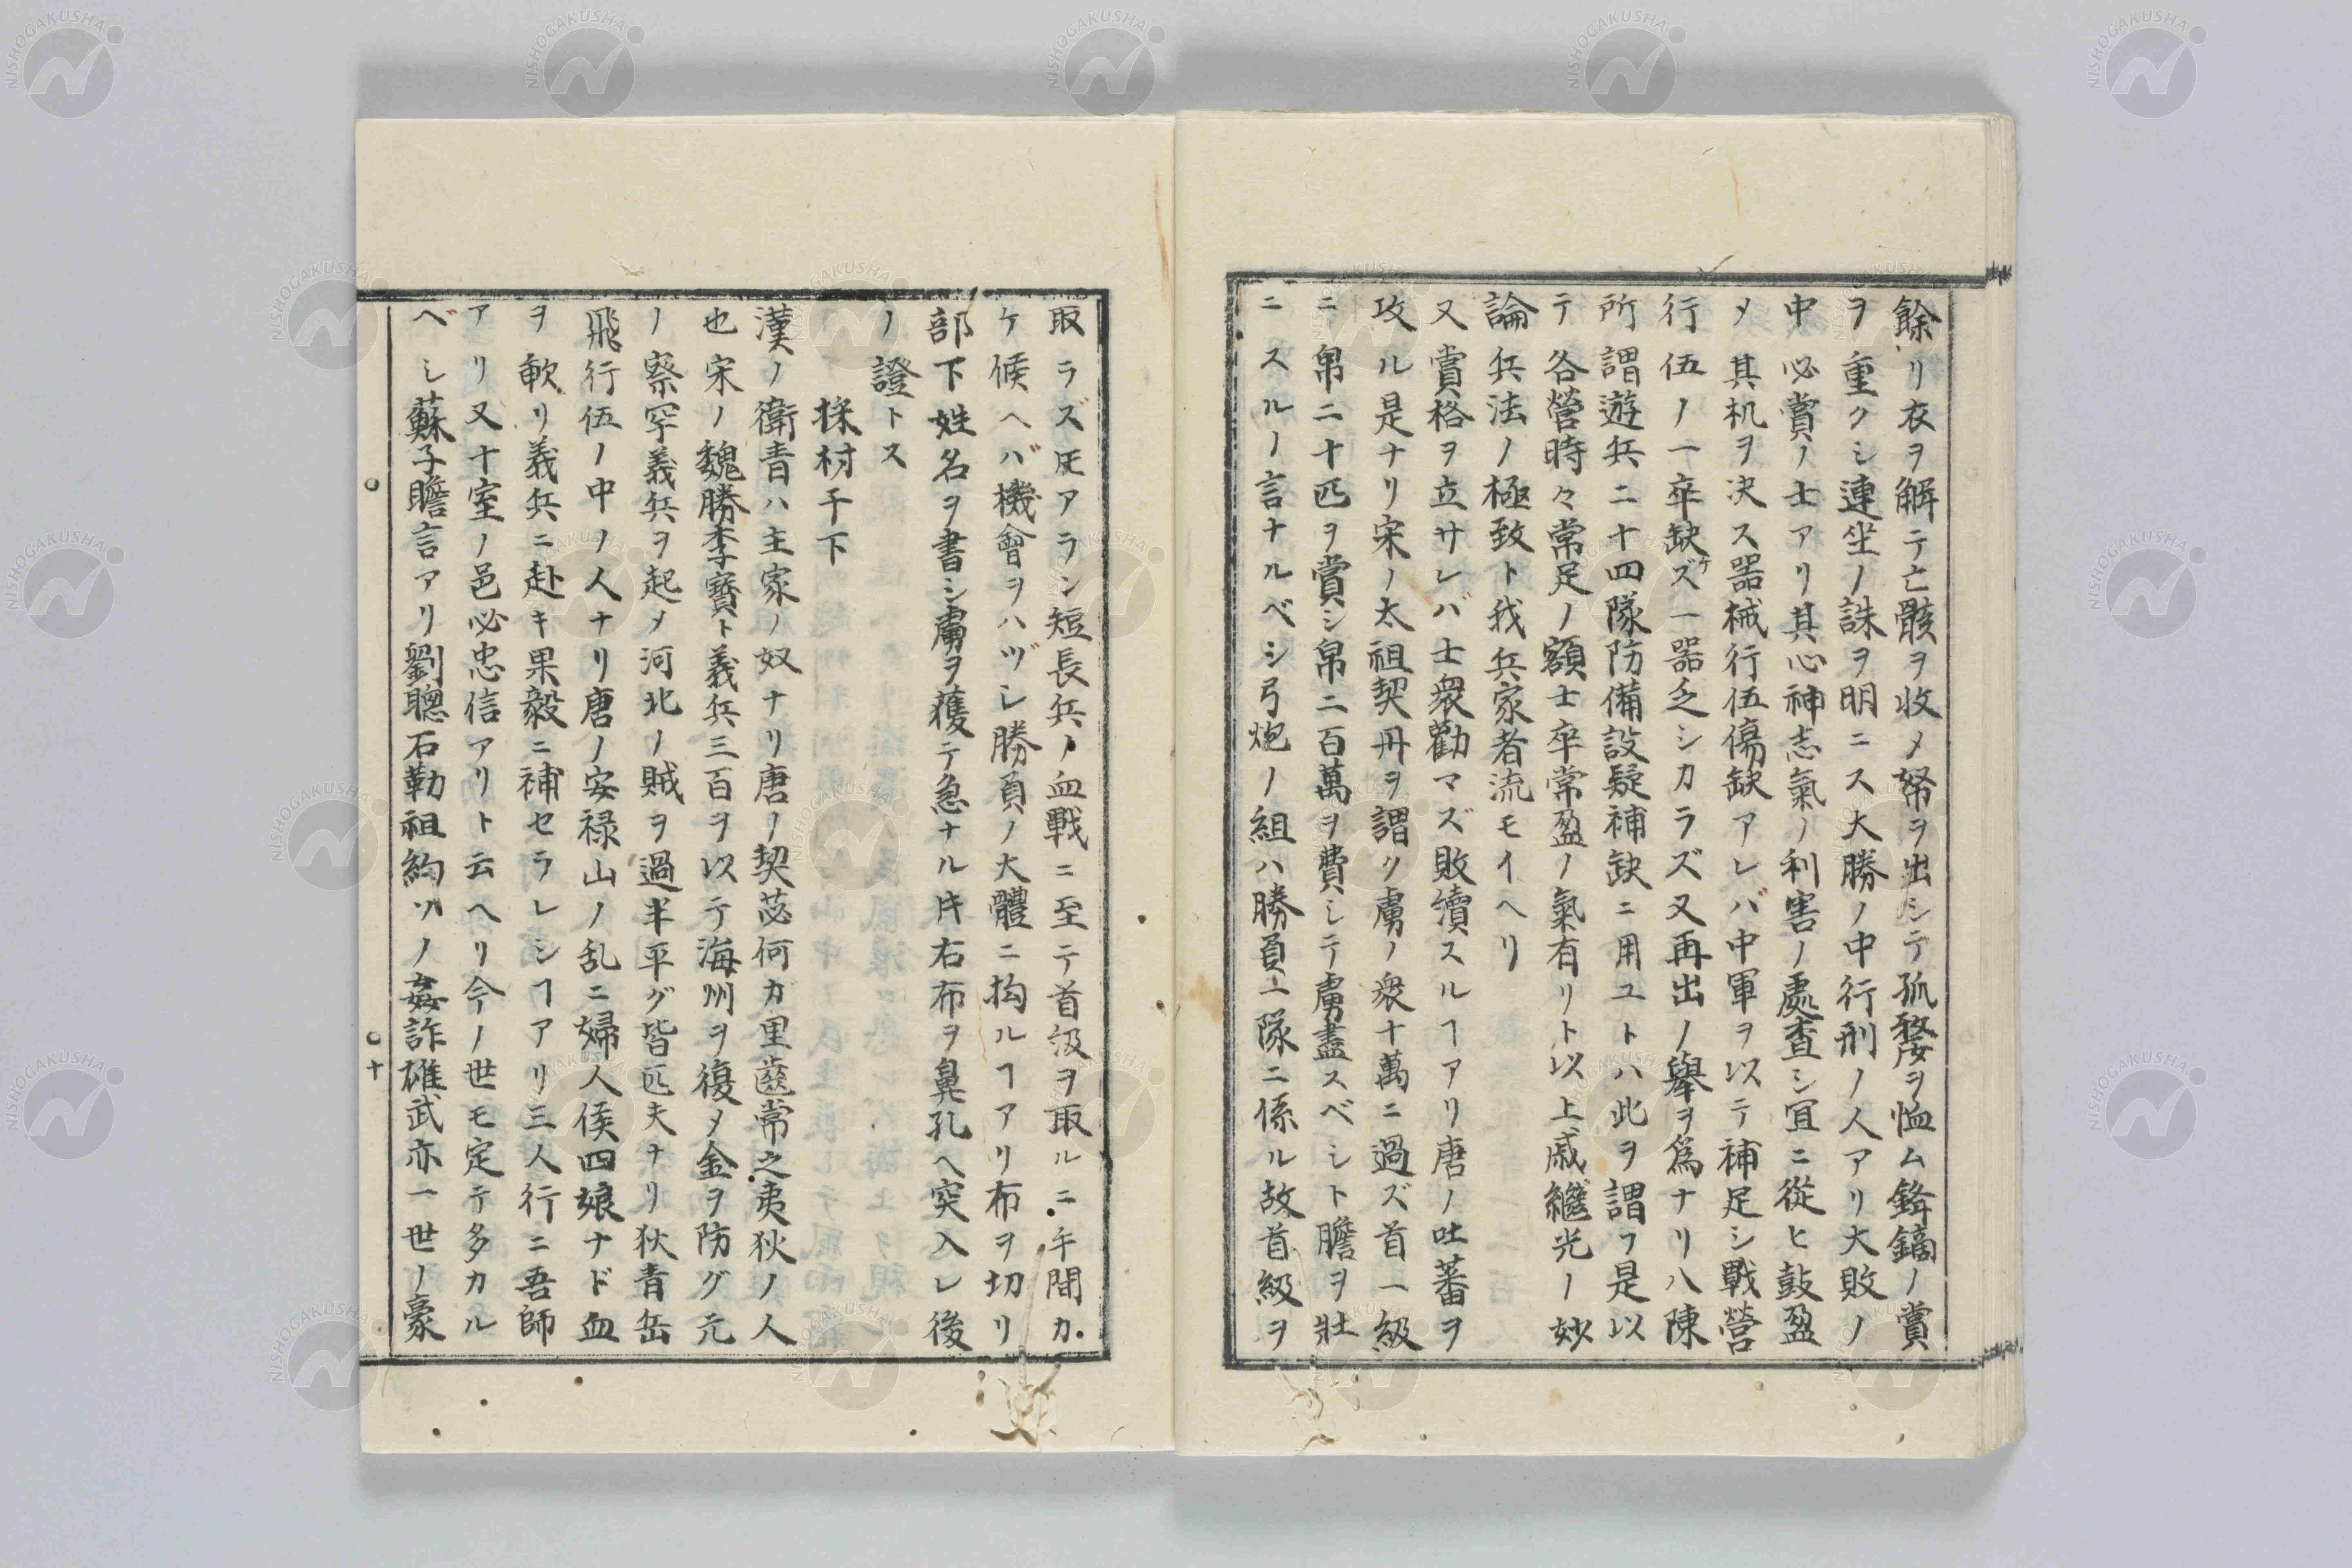 餘リ衣ヲ解テ亡骸ヲ收メ帑ヲ出シテ孤嫠ヲ恤ム鋒鏑ノ賞
ヲ重クシ連坐ノ誅ヲ明ニス大勝ノ中行刑ノ人アリ大敗ノ
中必賞ノ士アリ其心神志氣ノ利害ノ處查シ宜ニ從ヒ鼓盈
メ其机ヲ决ス器械行伍傷缺アレバ中軍ヲ以テ補足シ戰營
行伍ノ一卒缺ケズ一器乏シカラズ又再出ノ擧ヲ爲ナリ八陳
所謂遊兵二十四隊防備設疑補缺ニ用ユトハ此ヲ謂フ是以
テ各營時々常足ノ額士卒常盈ノ氣有リト以上戚繼光ノ妙
論兵法ノ極致ト我兵家者流モイヘリ
又賞格ヲ立サレバ士衆勸マズ敗績スルヿアリ唐ノ吐蕃ヲ
攻ル是ナリ宋ノ太祖契丹ヲ謂ク虜ノ衆十萬ニ過ズ首一級
ニ帛二十匹ヲ賞シ帛二百萬ヲ費シテ虜盡スベシト膽ヲ壯
ニスルノ言ナルベシ弓炮ノ組ハ勝負一隊ニ係ル故首級ヲ
取ラズ𪜈アラン短長兵ノ血戰ニ至テ首級ヲ取ルニ午間カ
ケ候ヘバ機會ヲハヅシ勝負ノ大體ニ拘ルヿアリ布ヲ切リ
部下姓名ヲ書シ虜ヲ獲テ急ナル片右布ヲ鼻孔ヘ突入レ後
ノ證トス
採材干下
漢ノ衛青ハ主家ノ奴ナリ唐ノ契苾何力里齒常之夷狄ノ人
也宋ノ魏勝李寶ト義兵三百ヲ以テ海州ヲ復メ金ヲ防グ元
ノ察罕義兵ヲ起メ河北ノ賊ヲ過半平グ皆匹夫ナリ狄青岳
飛行伍ノ中ノ人ナリ唐ノ安禄山ノ乱ニ婦人侯四娘ナド血
ヲ軟リ義兵ニ赴キ果毅ニ補セラレシヿアリ三人行ニ吾師
アリ又十室ノ邑必忠信アリト云ヘリ今ノ世モ定テ多カル
ベシ蘇子瞻言アリ劉聰石勒祖約ツノ姦詐雄武亦一世ノ豪
十
NISHOGAKUSHA